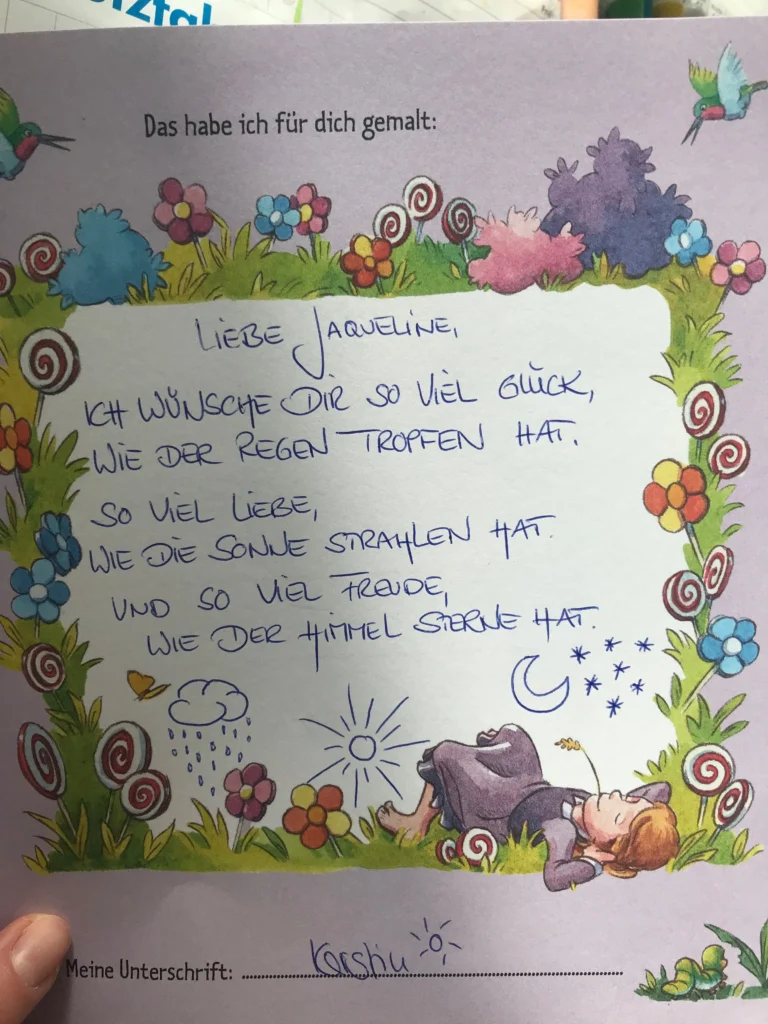 Das habe ich für dich gemalt:
LIEBE JAQUELINE,
ICH WÜNSCHE DIR SO VIEL GLÜCK,
WIE DER REGEN TROPFEN HAT.
SO VIEL LIEBE,
WIE DIE SONNE STRAHLEN HAT.
UND SO VIEL FREUDE,
WIE DER HIMMEL STERNE HAT.
Meine Unterschrift: Kerstin